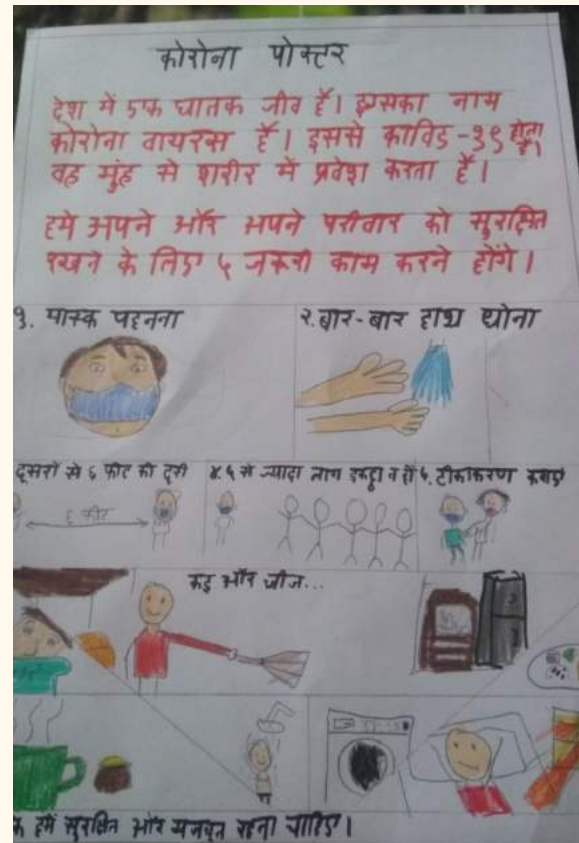 कोरोना पोस्टर
देश में एक घातक जीव है। इसका नाम
कोरोना वायरस है। इससे कोविड-१९ होता है।
वह मुंह से शरीर में प्रवेश करता है।
हमे अपने और अपने परीवार को सुरक्षित
रखने के लिए ५ जरूरी काम करने होंगे।
१. मास्क पहनना
२. बार-बार हाथ धोना
दूसरों से ६ फीट की दूरी
६ फीट
४. ५ से ज्यादा लोग इकट्ठा न हो
५. टीकाकरण कराएं
कई और चीज...
हमें सुरक्षित और मजबूत रहना चाहिए।